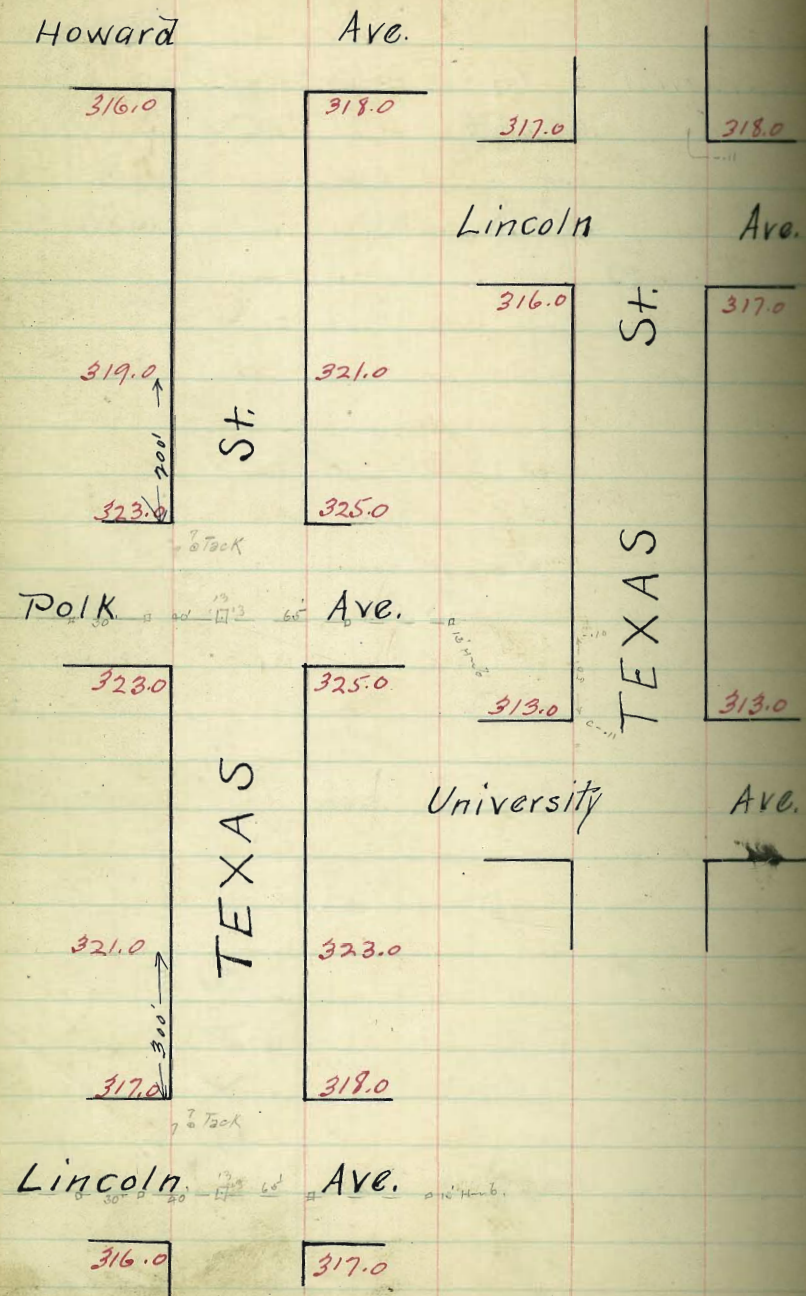 Howard Ave.
316.0 318.0
319.0 321.0
200'
St.
323.0 325.0
Tack
Polk Ave.
30' 40' 13 13 65'
323.0 325.0
TEXAS
321.0 323.0
300'
317.0 318.0
Tack
Lincoln Ave.
30' 40' 13 13 65'
316.0 317.0
317.0 318.0
Lincoln Ave.
316.0 317.0
TEXAS St.
313.0 313.0
University Ave.